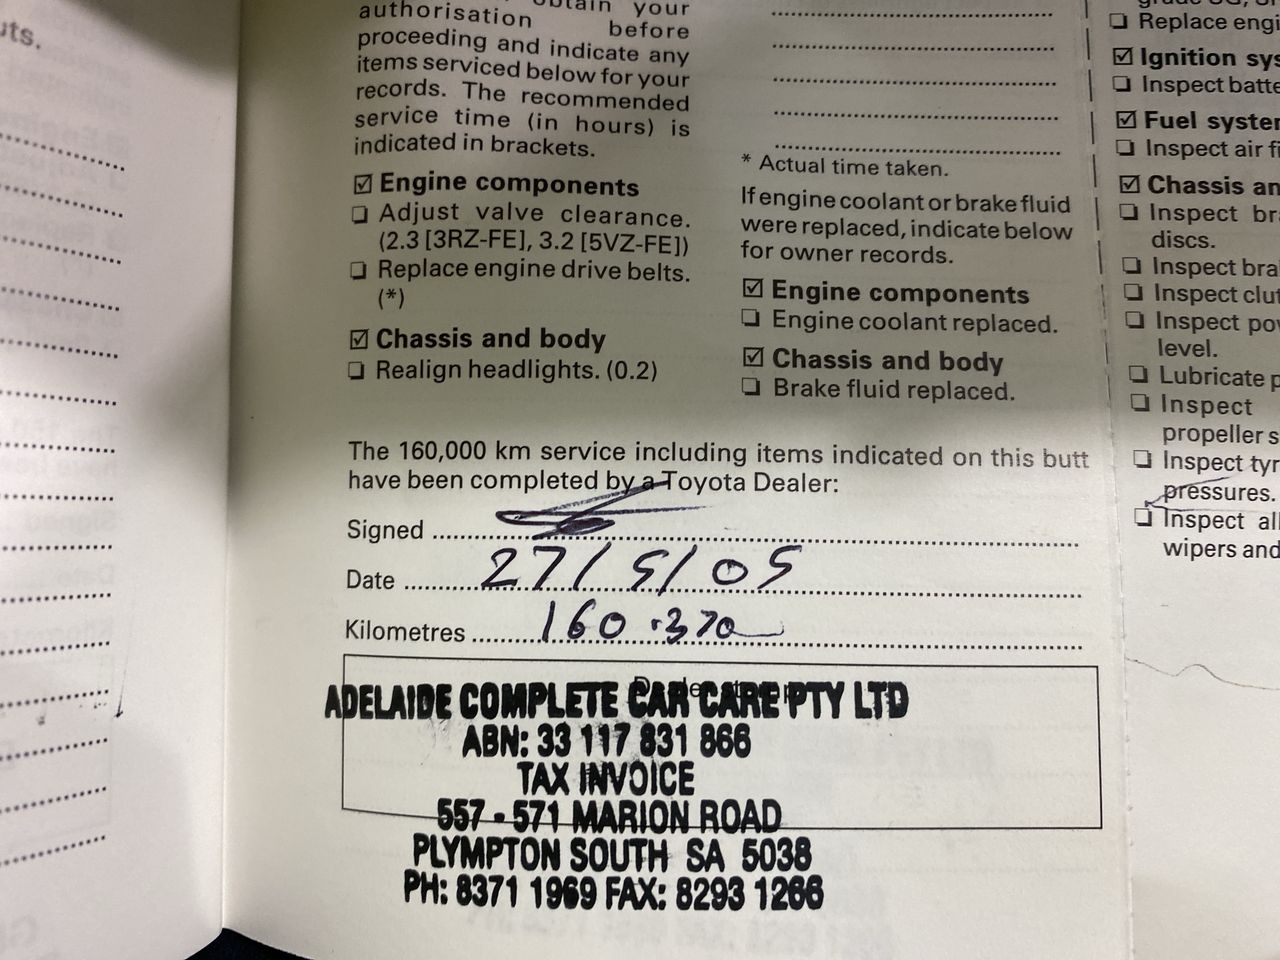 uts.
obtain your
authorisation before
proceeding and indicate any
items serviced below for your
records. The recommended
service time (in hours) is
indicated in brackets.
☑ Engine components
❏ Adjust valve clearance.
(2.3 [3RZ-FE], 3.2 [5VZ-FE])
❏ Replace engine drive belts.
(*)
☑ Chassis and body
❏ Realign headlights. (0.2)
* Actual time taken.
If engine coolant or brake fluid
were replaced, indicate below
for owner records.
☑ Engine components
❏ Engine coolant replaced.
☑ Chassis and body
❏ Brake fluid replaced.
The 160,000 km service including items indicated on this butt
have been completed by a Toyota Dealer:
Signed
Date 27/5/05
Kilometres 160.370
ADELAIDE COMPLETE CAR CARE PTY LTD
ABN: 33 117 831 866
TAX INVOICE
557 - 571 MARION ROAD
PLYMPTON SOUTH SA 5038
PH: 8371 1969 FAX: 8293 1266
❏ Replace engi
☑ Ignition sys
❏ Inspect batte
☑ Fuel system
❏ Inspect air fi
☑ Chassis an
❏ Inspect bra
discs.
❏ Inspect bra
❏ Inspect clut
❏ Inspect pow
level.
❏ Lubricate p
❏ Inspect
propeller s
❏ Inspect tyr
pressures.
❏ Inspect all
wipers and